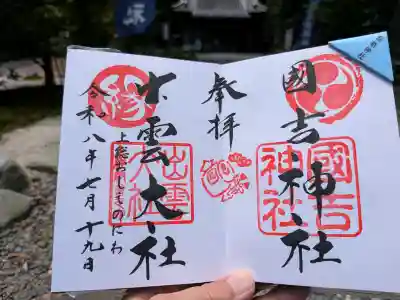 國吉神社
國吉
神社
奉拝
出雲大社
出雲
大社
縁
上総おしどりのにわ
令和八年七月十九日